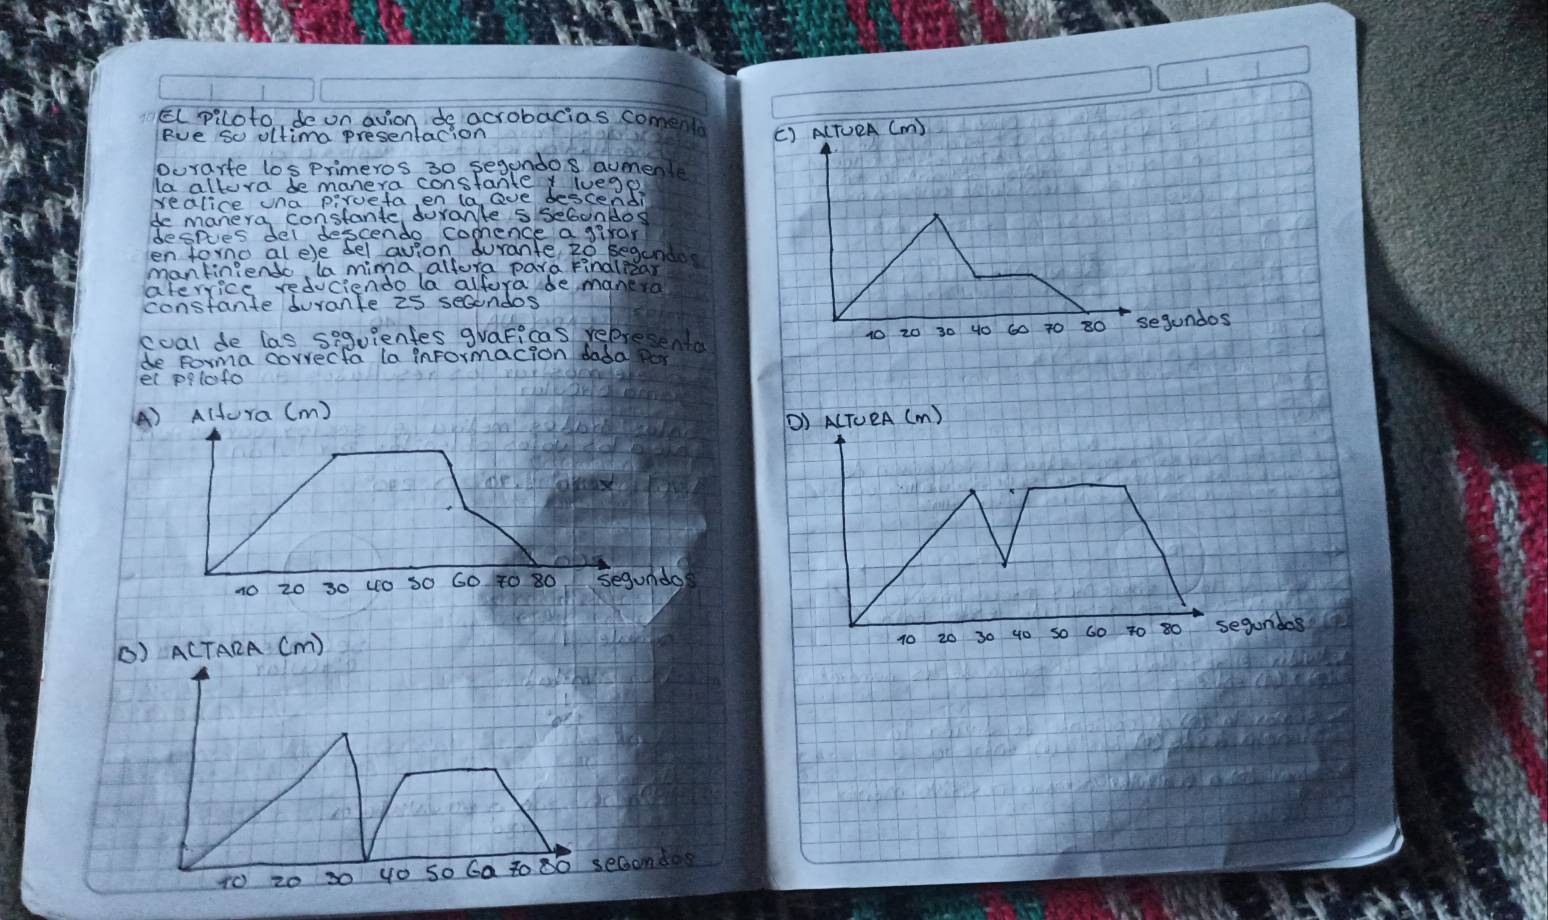 EL piloto de un avion de acrobacias comenta
Fue su ultima presentacion
Durante los primeros 30 segundos aumente
la altura de manera constante y luego
realice una pirueta en la que descendi
de manera constante durante 5 segundos
despues del descendo comence a girar
en torno al eje del avion durante 20 segundos
mantiniendo la mima altura para finalizar
aterrice reduciendo la altura de manera
constante durante 25 segundos
cual de las siguientes graficas representa
de forma correcta la informacion dada por
el piloto
A) Altura (m)
10 20 30 40 50 60 70 80 segundos
B) ALTARA (m)
10 20 30 40 50 60 70 80 segondos
C) ALTURA (m)
10 20 30 40 60 70 80 segundos
D) ALTURA (m)
10 20 30 40 50 60 70 80 segundos